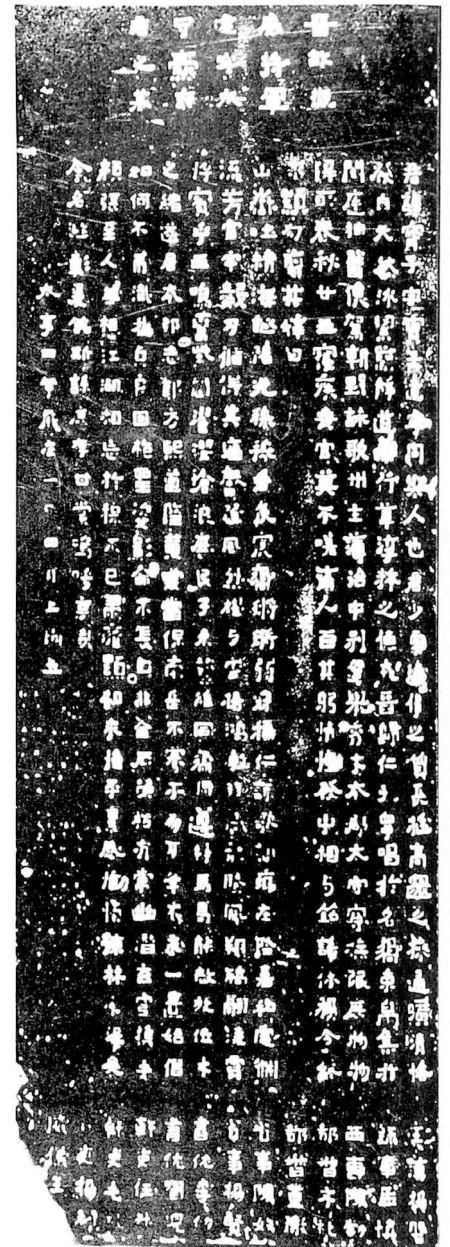 晉故振
威將軍
建寧太
守爨府
君之墓
君諱寶子字寶子建寧同樂人也君少稟瓌偉之質長挺高邈之操通曠清恪
發自天然冰絜簡靜道兼行葦淳粹之德戎晉歸仁九皋唱於名嚮束帛集於
閨庭抽簪俟駕朝野詠歌州主簿治中別駕舉秀才本郡太守寧撫氓庶物物
得所春秋廿五寢疾喪官莫不嗟痛人百其躬情慟發中相与銘誄休揚令終
永顯勿翦其辭曰
山嶽吐精海誕陟光穆穆君侯震嚮鏘鏘弱冠稱仁詠歌朝鄉在陰嘉和處淵
流芳宮宇數仞循得其牆馨隨風烈耀与雲揚鴻漸羽儀龍騰鳳翔矯翮凌霄
將賓乎王鳴鸞紫闥濯纓滄浪庶民子來縶維同嚮周遵絆馬曷能赦放位才
之緒遂居本邦志鄴方熙道隆黃裳當保南岳不騫不崩享年不永一匱始倡
如何不弔殲我貞良回抱聖姿影命不長自非金石榮枯有常幽潛玄穹攜手
顏張至人無想江湖相忘於穆不已肅雍顯相永惟平素感慟忾慷林宗沒矣
令名遐彰爰銘斯誄庶存甘棠嗚呼哀哉
大亨四年歲在乙巳四月上恂立
主簿楊磐
錄事孟慎
西曹陳勃
都督文禮
都督董徹
省事陳奴
省事楊賢
書佐李仂
書佐劉兒
幹吏任升
幹吏毛禮
小吏楊利
威儀王